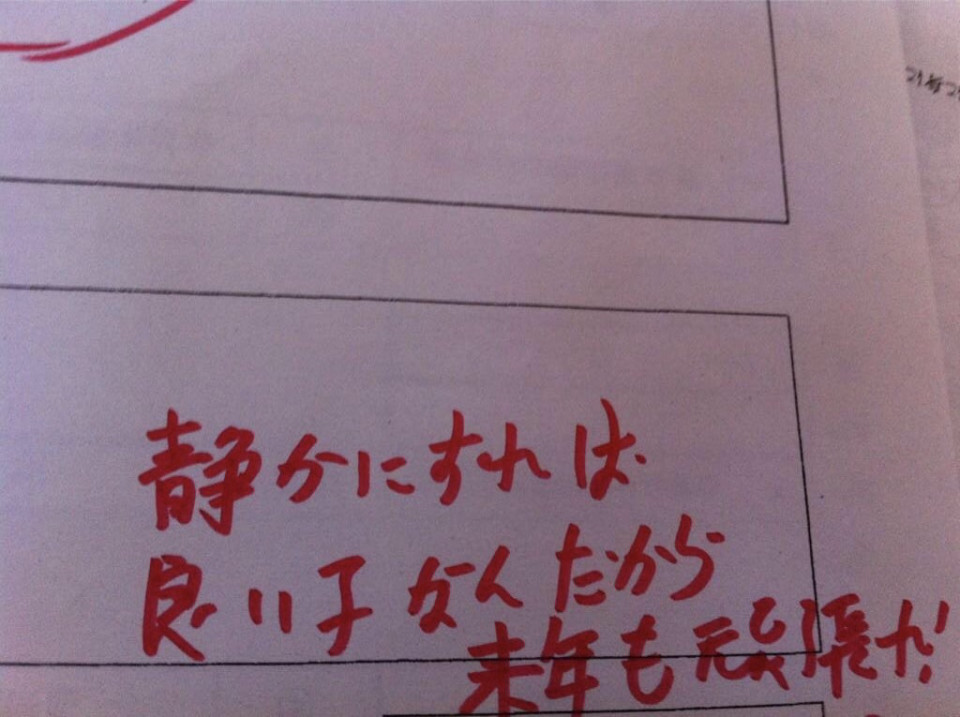 静かにすれば
良い子なんだから
来年も頑張れ!